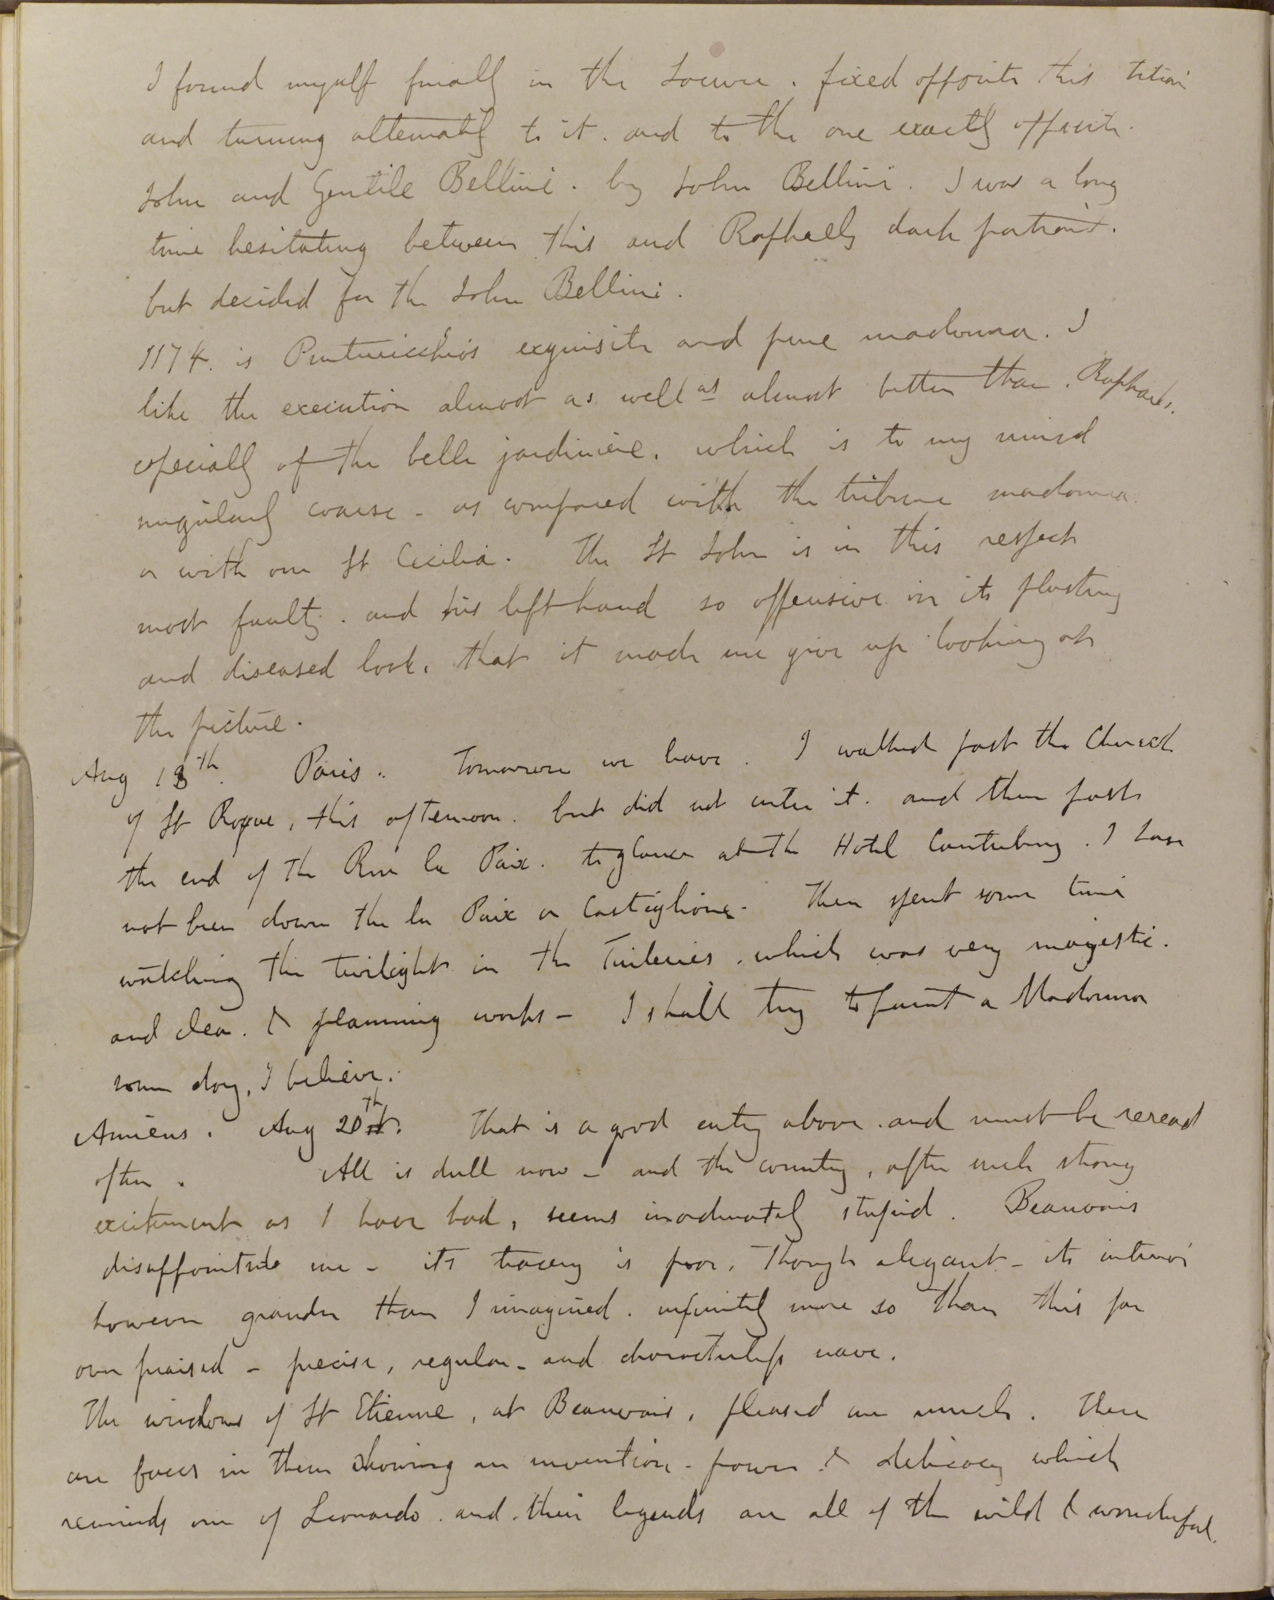 I found myself finally in the Louvre. fixed opposite this titian
and turning alternately to it. and to the one exactly opposite.
John and Gentile Bellini. by John Bellini. I was a long
time hesitating between this and Raphaels dark portrait.
but decided for the John Bellini.
1174. is Pinturicchio's exquisite and pure madonna. I
like the execution almost as well as almost better than. Raphaels.
especially of the belle jardiniere. which is to my mind
singularly coarse - as compared with the tribune madonna.
or with our St Cecilia. The St John is in this respect
most faulty. and his left hand so offensive in its
and diseased look. that it made me give up looking at
the picture.
Aug 18th. Paris. Tomorrow we leave. I walked past the Church
of St Roque, this afternoon. but did not enter it. and then past
the end of the Rue la Paix. to glance at the Hotel Canterbury. I have
not been down the la Paix or Castiglione. Then spent some time
watching the twilight in the Tuileries. which was very majestic.
and clear. & planning works - I shall try to paint a Madonna
some day, I believe.
Amiens. Aug 20th. That is a good entry above. and must be reread
often. All is dull now - and the country, after such strong
excitement as I have had, seems inordinately stupid. Beauvais
disappointed me - its tracery is poor, though elegant - its interior
however grander than I imagined. infinitely more so than this far
over praised - precise, regular - and characterless nave.
The windows of St Etienne, at Beauvais, pleased me much. There
are faces in them showing an invention - power & delicacy which
reminds one of Leonardo. and their legends are all of the wild & wonderful.